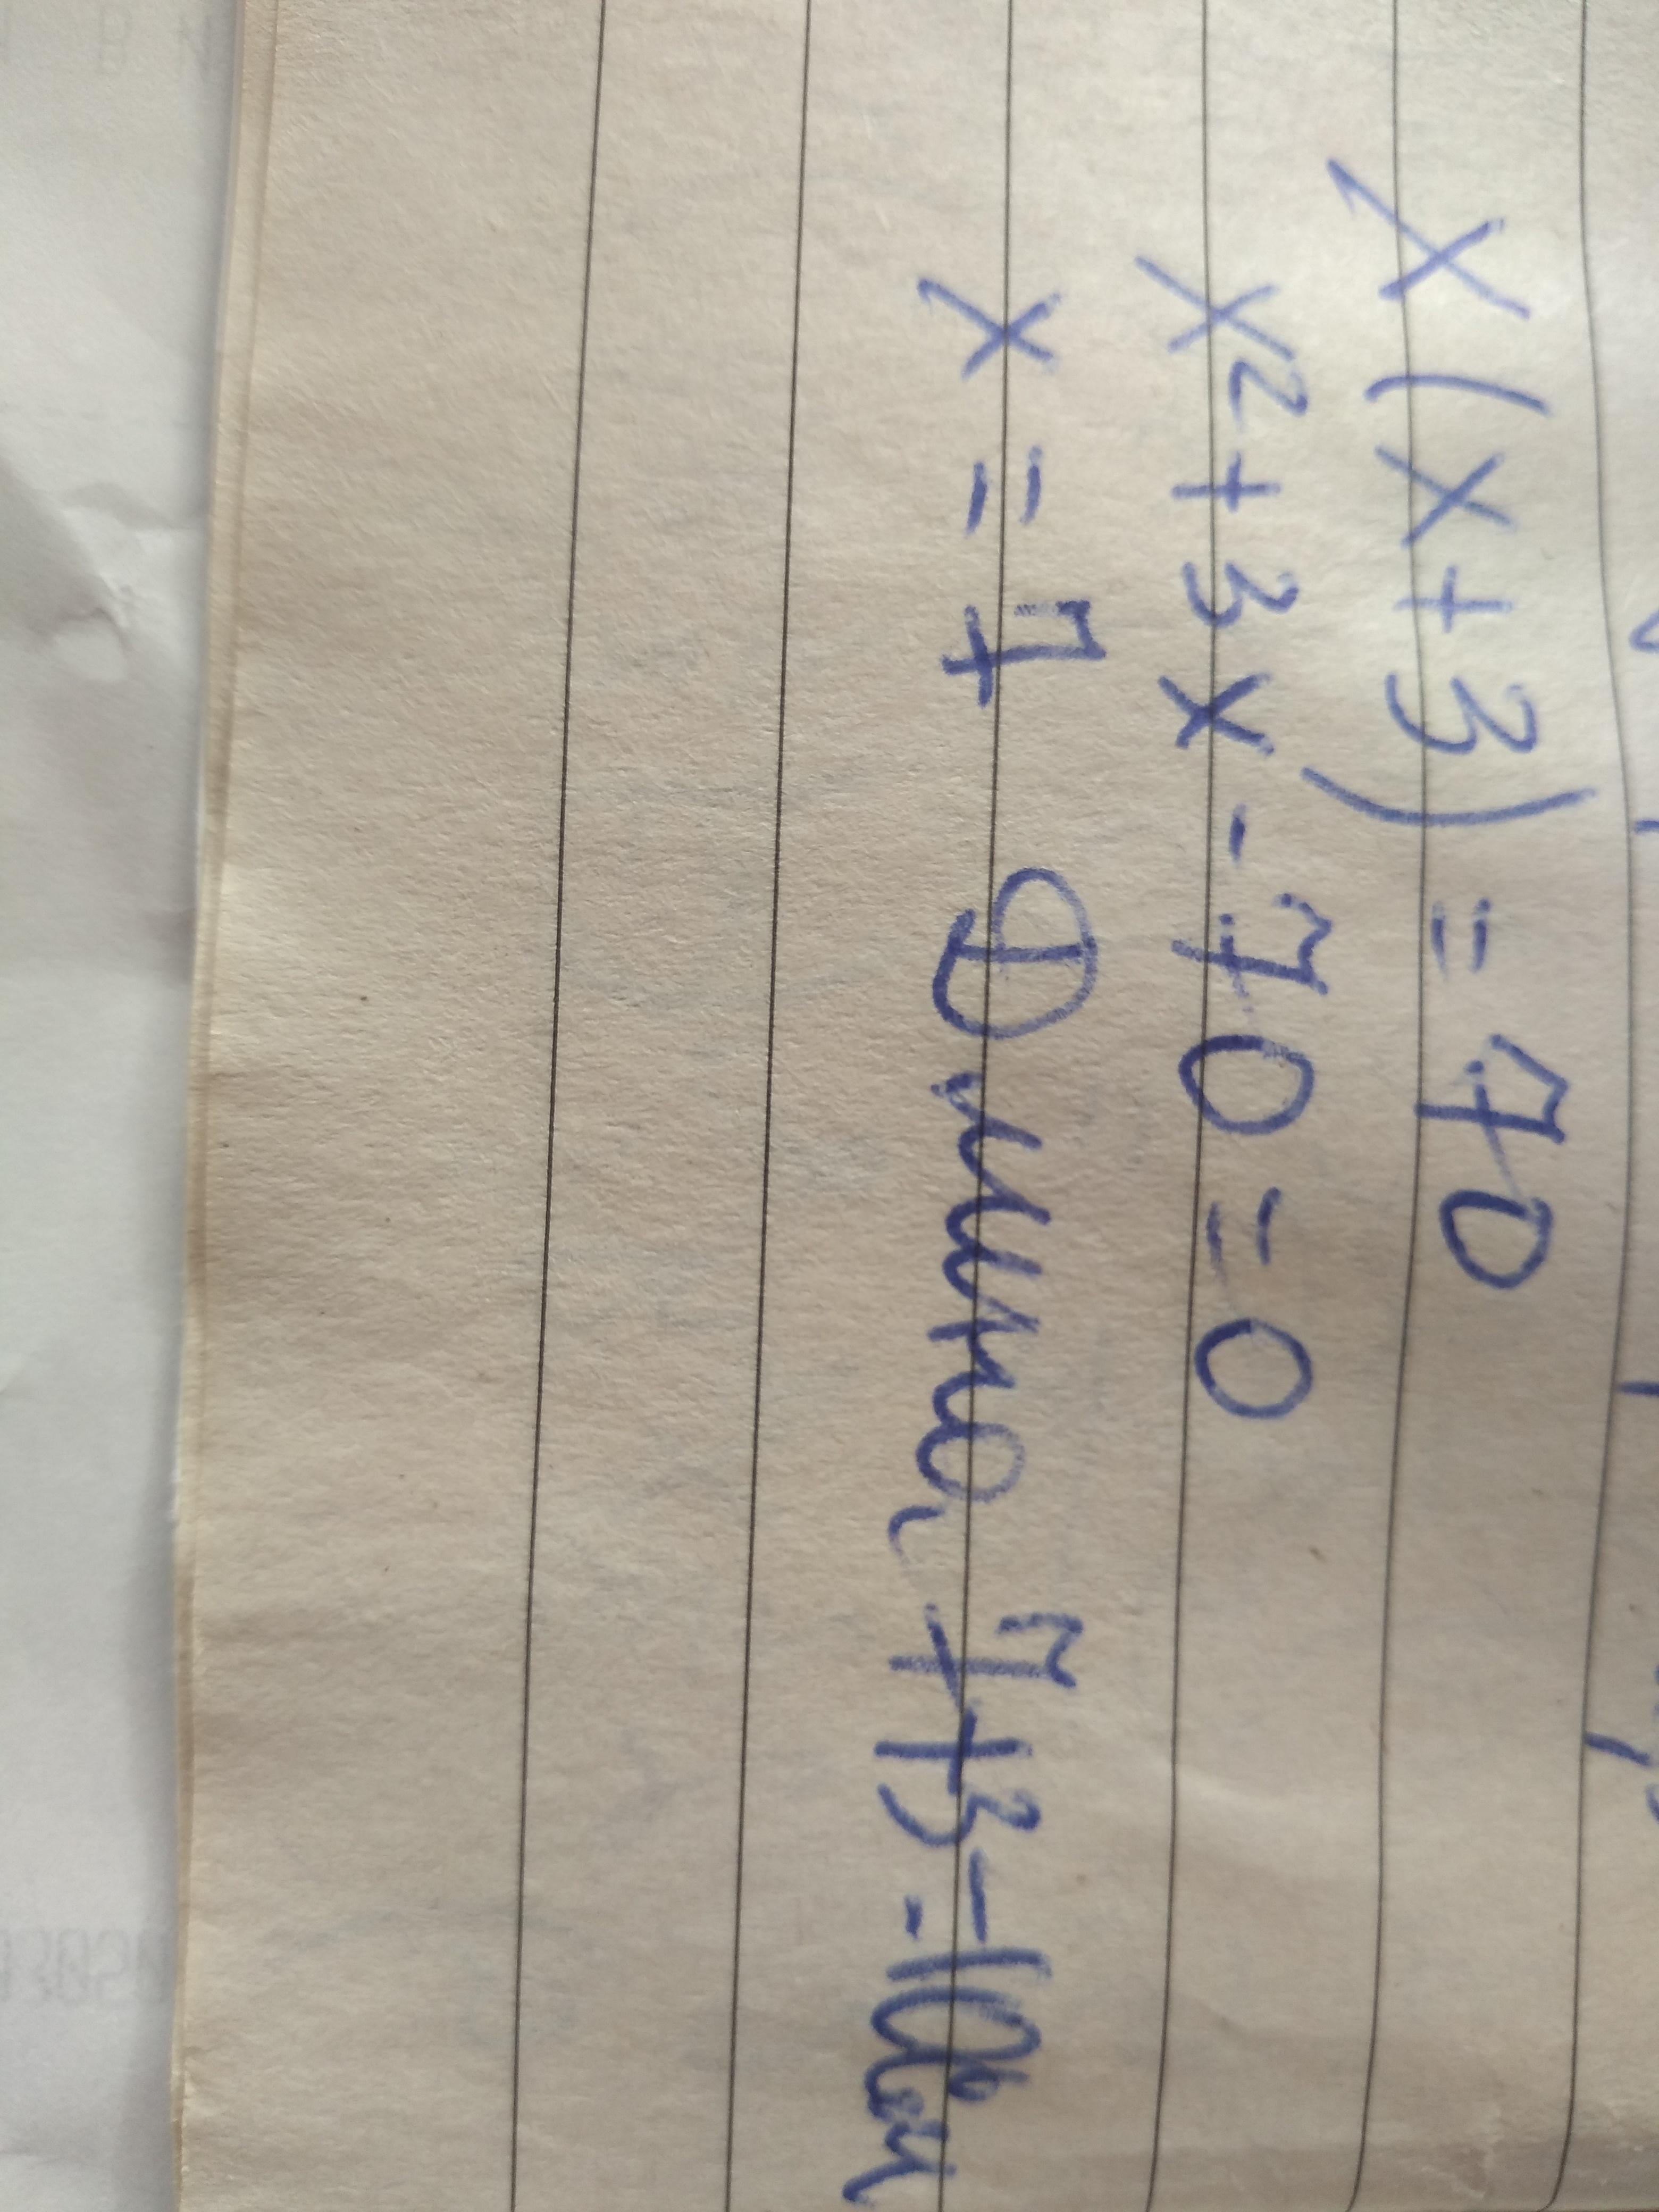 x(x+3)=70
x²+3x-70=0
x=7 Длина 7+3=10см